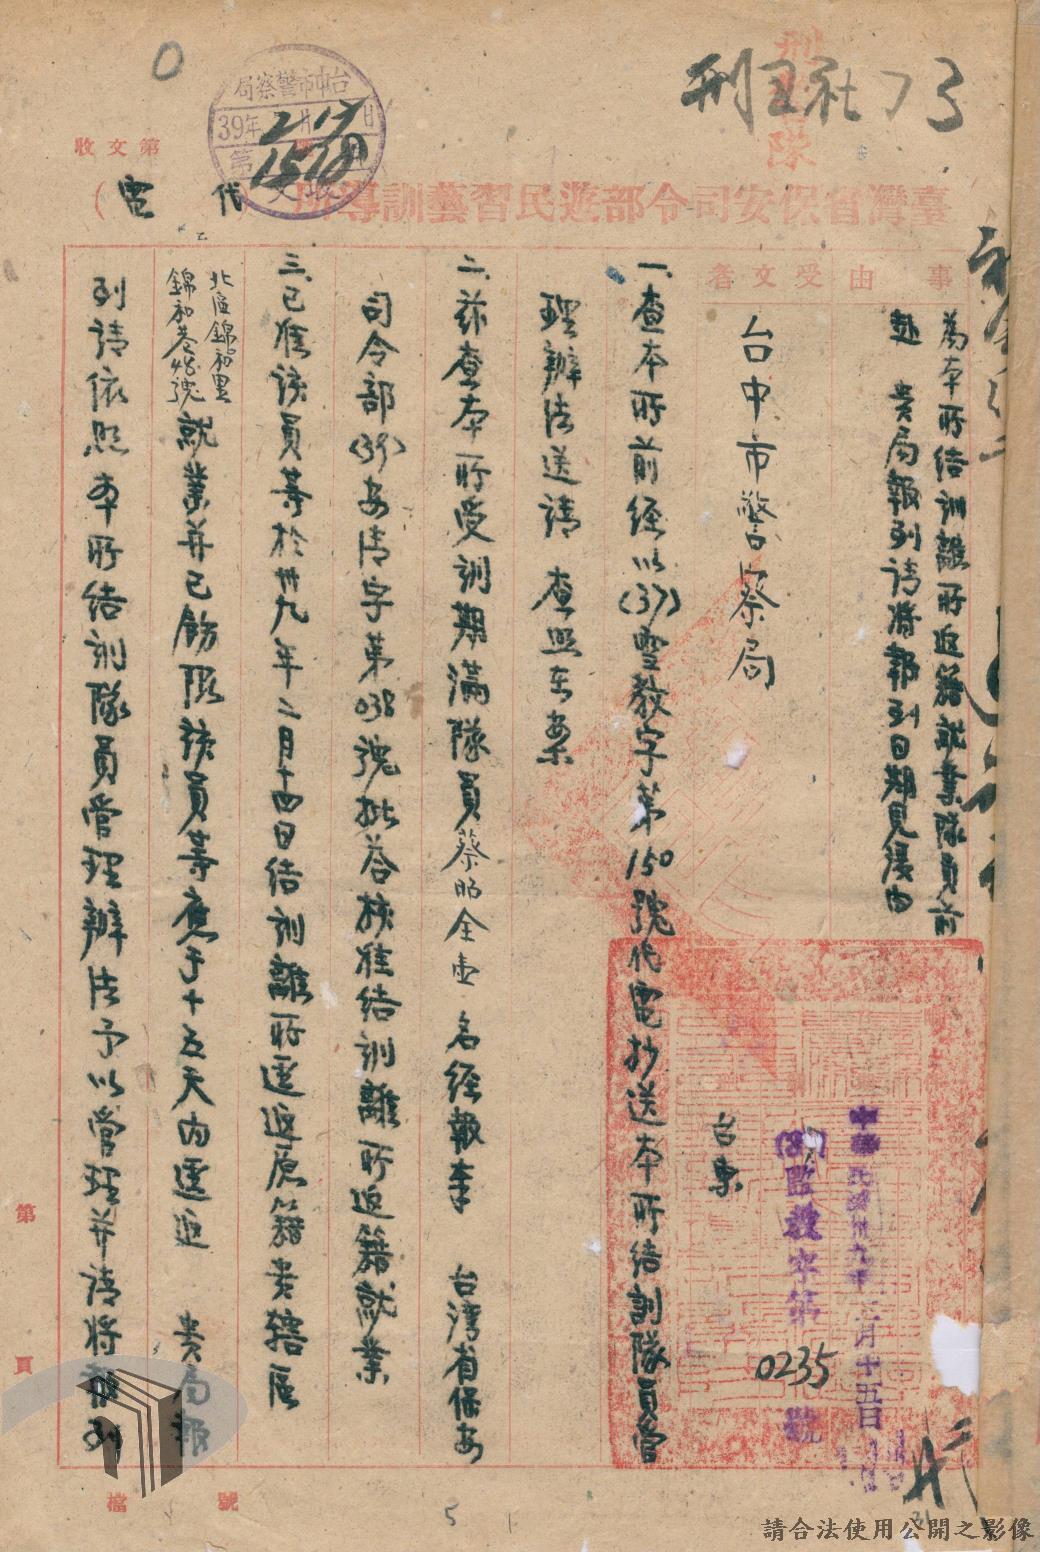 刑 社 73
臺灣省保安司令部遊民習藝訓導所
(代電)
收文第
台中市警察局
39年2月17日
第1518
收文
事由
受文者
為本所結訓離所返籍就業隊員前
赴 貴局報到請將報到日期見復由
台中市警察局
中華民國卅九年二月十五日
(39)監教字第0235號
台東
一、查本所前經以(37)雲教字第150號代電抄送本所結訓隊員管
理辦法送請 查照在案
二、茲查本所受訓期滿隊員蔡昭全壹名經報奉 台湾省保安
司令部(39)安清字第038號批答核准結訓離所返籍就業
三、已准該員等於卅九年二月十四日結訓離所遄返原籍貴轄區
北區錦和里
錦和巷48號就業并已飭限該員等應于十五天內遄返 貴局報
到請依照本所結訓隊員管理辦法予以管理并請將報到
第 頁
檔 號
5
31
請合法使用公開之影像